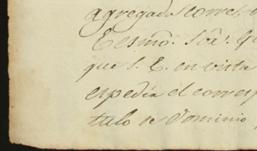 agregado corre
Eesmo. Sõr. Qu
que S. E. en vista
espedia el corresp
tulo de Dominio